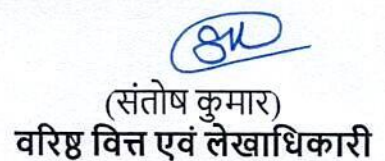 (संतोष कुमार)
वरिष्ठ वित्त एवं लेखाधिकारी